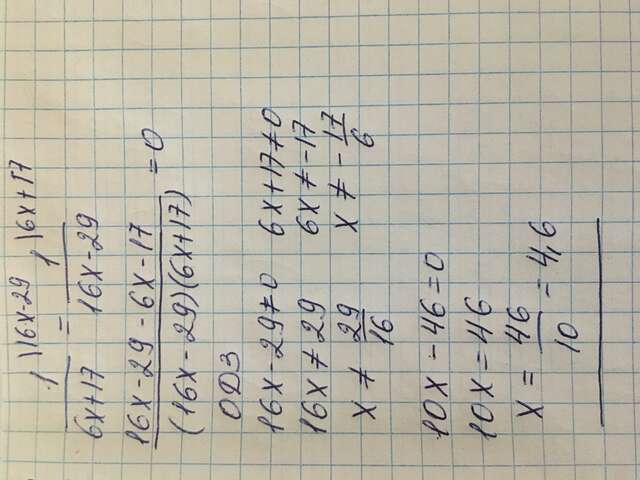 1 \16x-29 1 \6x+17
6x+17 = 16x-29
16x-29-6x-17
(16x-29)(6x+17) =0
ОДЗ
16x-29≠0 6x+17≠0
16x≠29 6x≠-17
x≠ 29/16 x≠ -17/6
10x-46=0
10x=46
x= 46/10 =4,6